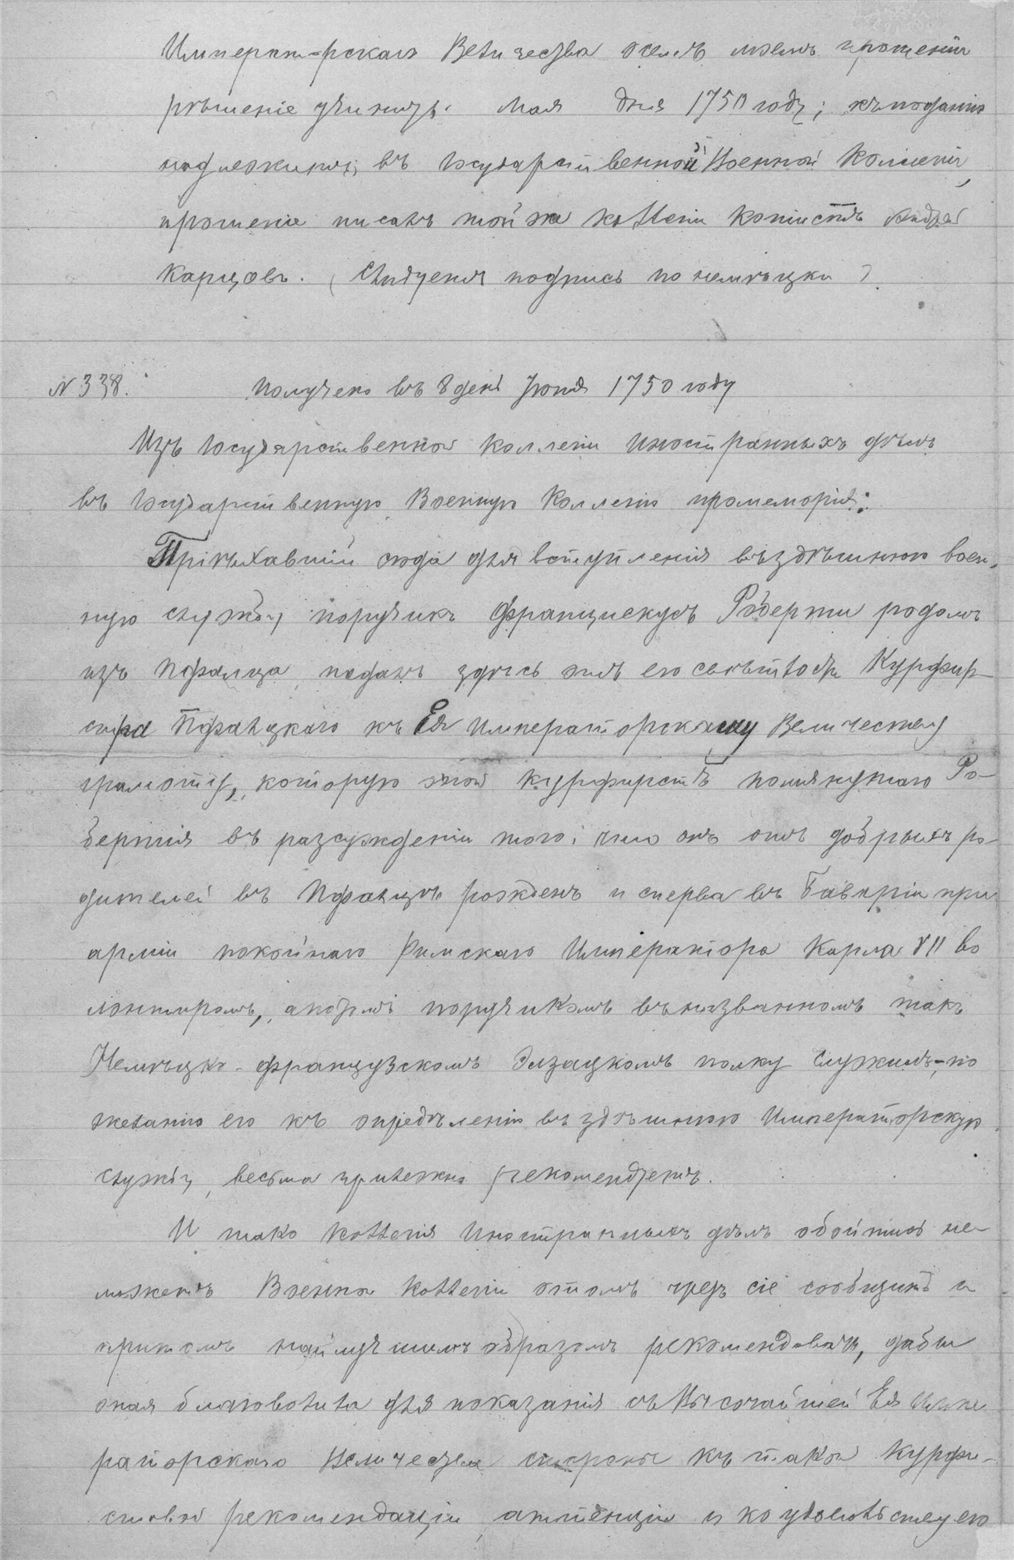 Императорскаго Величества о семъ моемъ прошеніи
рѣшеніе учинить. Мая дня 1750 году; къ поданію
надлежитъ въ Государственной Военной Коллегіи,
прошеніе писалъ той же Коллегіи Копіистъ
Карцовъ. (Слѣдуетъ подпись по немѣцки).
№ 338. Получено въ 8 день Іюня 1750 году
Изъ Государственной Коллегіи Иностранныхъ дѣлъ
въ Государственную Военную Коллегію промеморія:
Пріѣхавшій сюда для вступленія въ здѣшнюю воен-
ную службу поручикъ Францискусъ Роберти родомъ
изъ Пфальца подалъ здѣсь отъ его свѣтлости Курфир-
стра Пфальцкаго къ Ея Императорскому Величеству
грамоту, которою этой Курфирстъ помянутаго Ро-
бертія въ разсужденіи того, что онъ отъ добрыхъ ро-
дителей въ Пфальцѣ рожденъ и сперва въ Баваріи при
арміи покойнаго Римскаго Императора Карла VII во
лонтиромъ, а потомъ поручикомъ въ названномъ такъ
Немѣцко-французскомъ Элзацкомъ полку служилъ, по
желанію его къ опредѣленію въ здѣшнюю Императорскую
службу, весьма прилежно рекомендуетъ.
И тако Коллегія Иностранныхъ дѣлъ обойтись не-
можетъ Военной Коллегіи о томъ чрезъ сіе сообщить и
притомъ наилучшимъ образомъ рекомендовать, дабы
оная благоволила для показанія съ Высочайшей Ея Импе
раторскаго Величества стороны къ такой Курфи-
стовой рекомендаціи аттенціи и ко удовольствію его